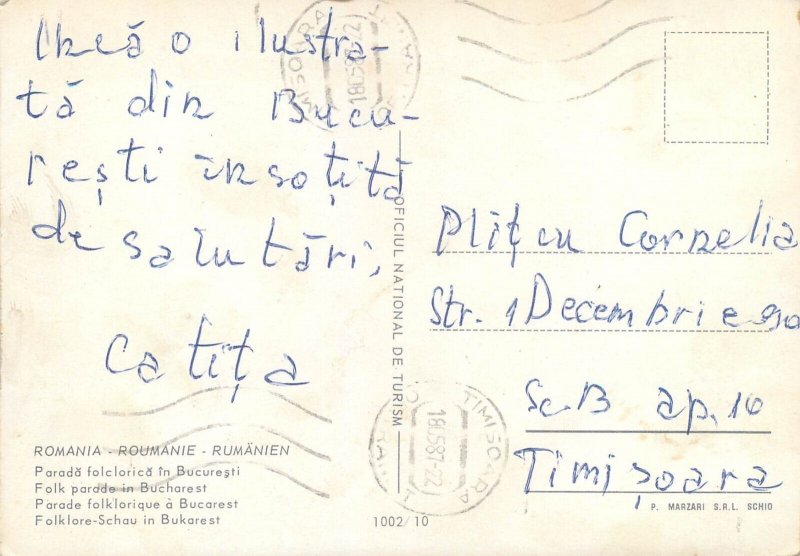 Încă o ilustra-
tă din Bucu-
rești însoțită
de salutări,
Catița
ROMANIA - ROUMANIE - RUMÄNIEN
Paradă folclorică în București
Folk parade in Bucharest
Parade folklorique à Bucarest
Folklore-Schau in Bukarest
1002/10
OFICIUL NATIONAL DE TURISM
TIMISOARA
TIMISOARA
Cornelia
Str. 1 Decembrie 90
Sc.B ap. 10
Timișoara
P. MARZARI S.R.L. SCHIO